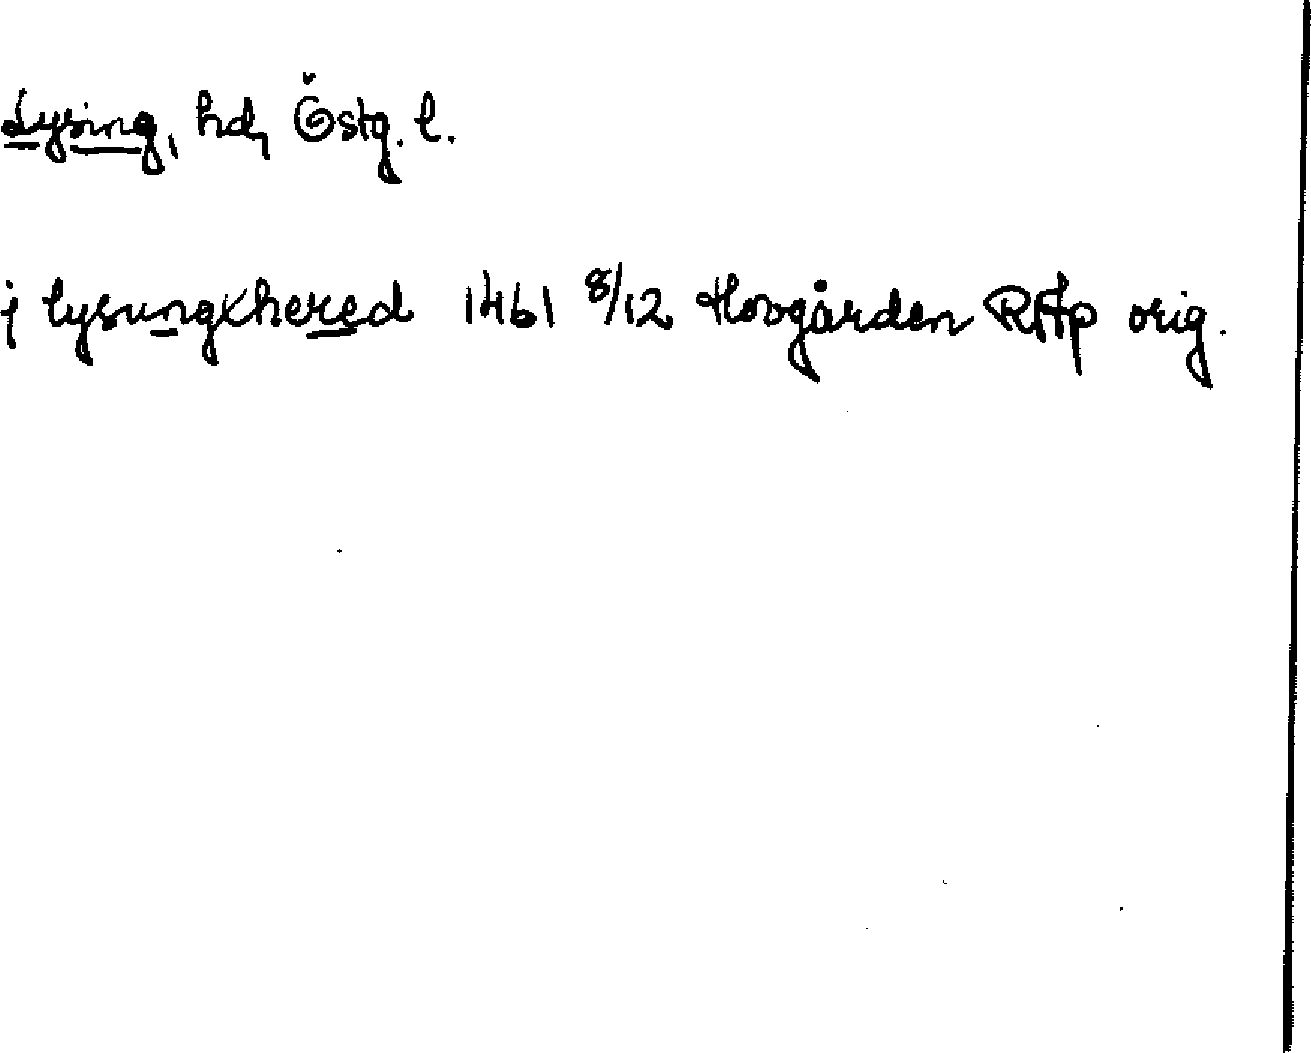 Lysing, hd, Östg. l.
j lysungxhered 1461 8/12 Hovgården RAp orig.